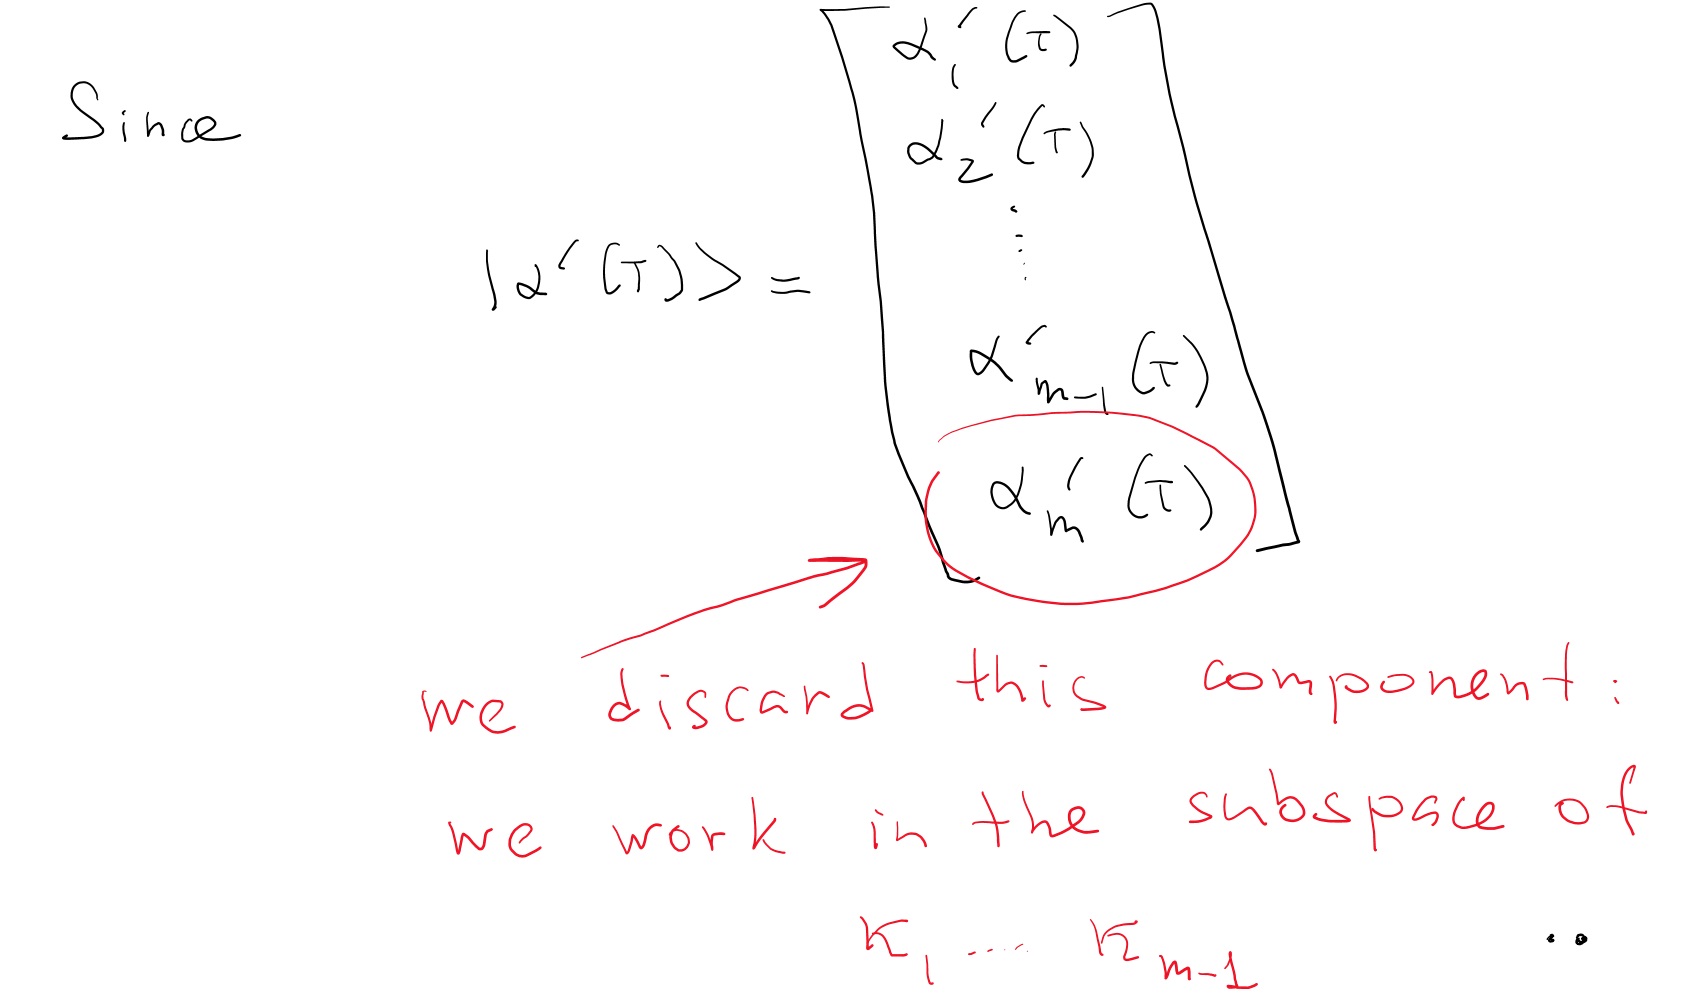 α₁′(T)
Since
α₂′(T)
⋮
|α′(T)⟩⟩ =
α′ₘ₋₁(T)
αₘ′(T)
we discard this component:
we work in the subspace of
K₁ .... Kₘ₋₁